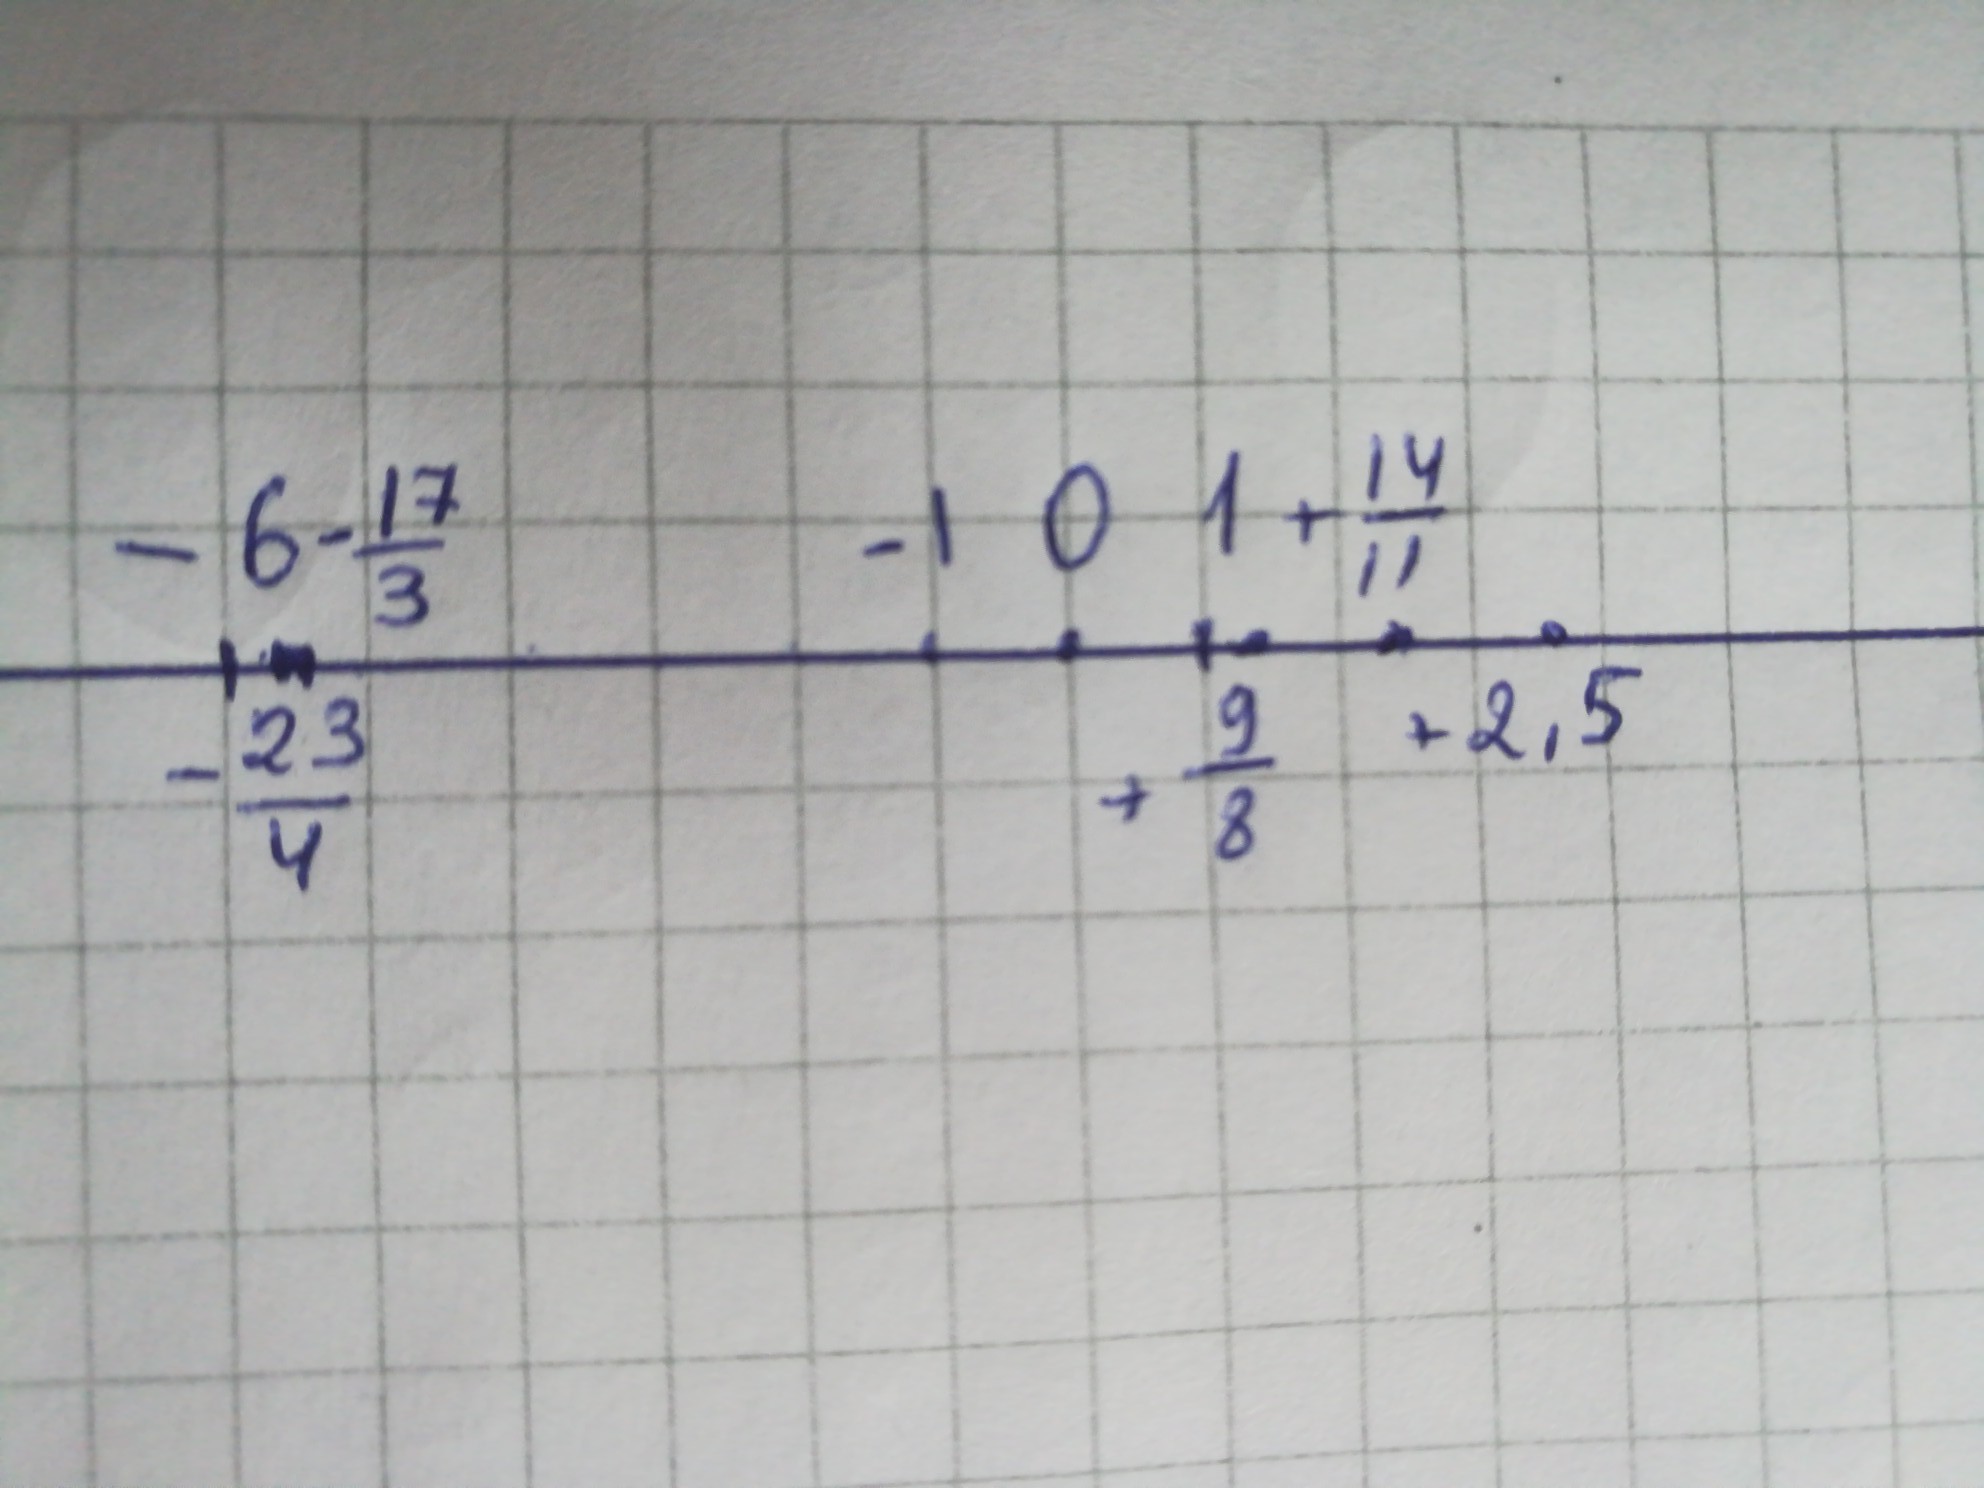 -6 -17/3 -1 0 1 +14/11
-23/4 +9/8 +2,5